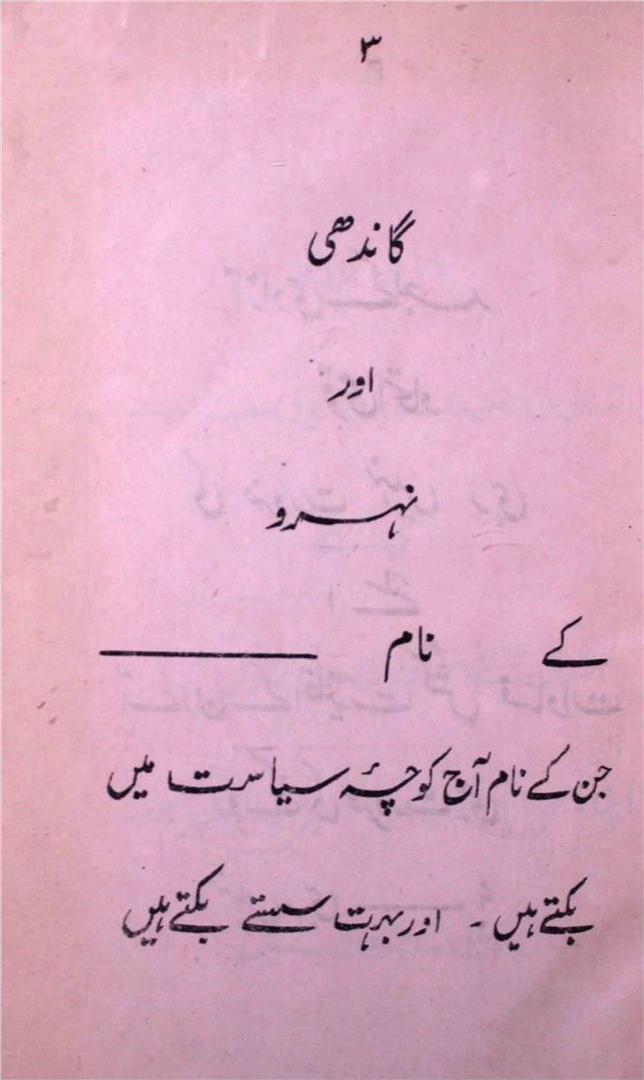 ۳
گاندھی
اور
نہرو
کے نام ———
جن کے نام آج کوچۂ سیاست میں
بکتے ہیں ۔ اور بہت سستے بکتے ہیں